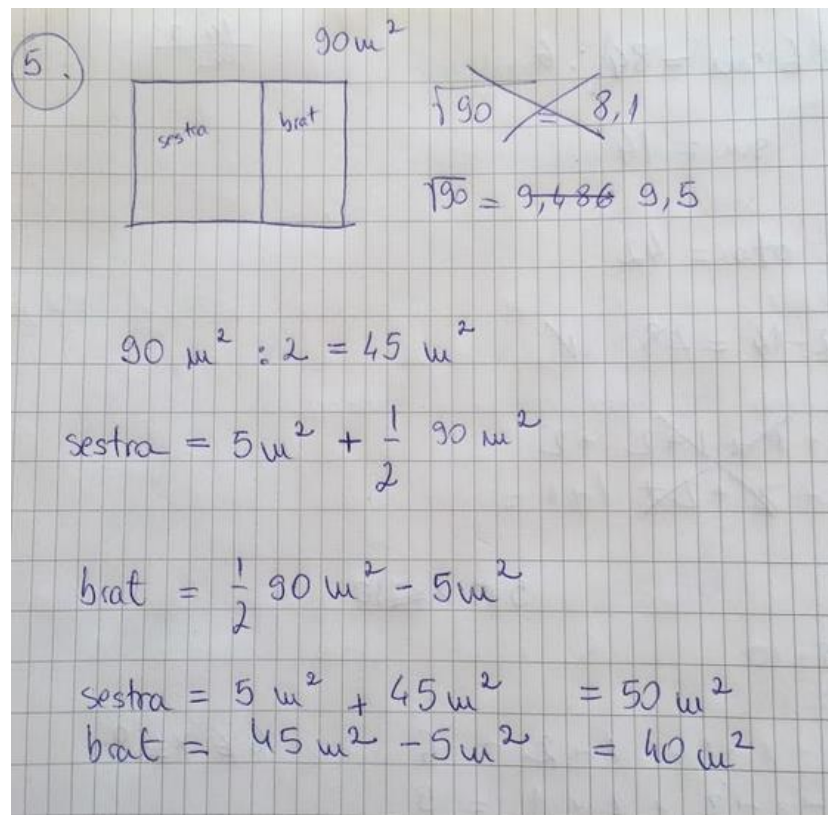 90 m²
5.
sestra brat
√90 = 8,1
√90 = 9,486 9,5
90 m² : 2 = 45 m²
sestra = 5 m² + 1/2 90 m²
brat = 1/2 90 m² - 5 m²
sestra = 5 m² + 45 m² = 50 m²
brat = 45 m² - 5 m² = 40 m²